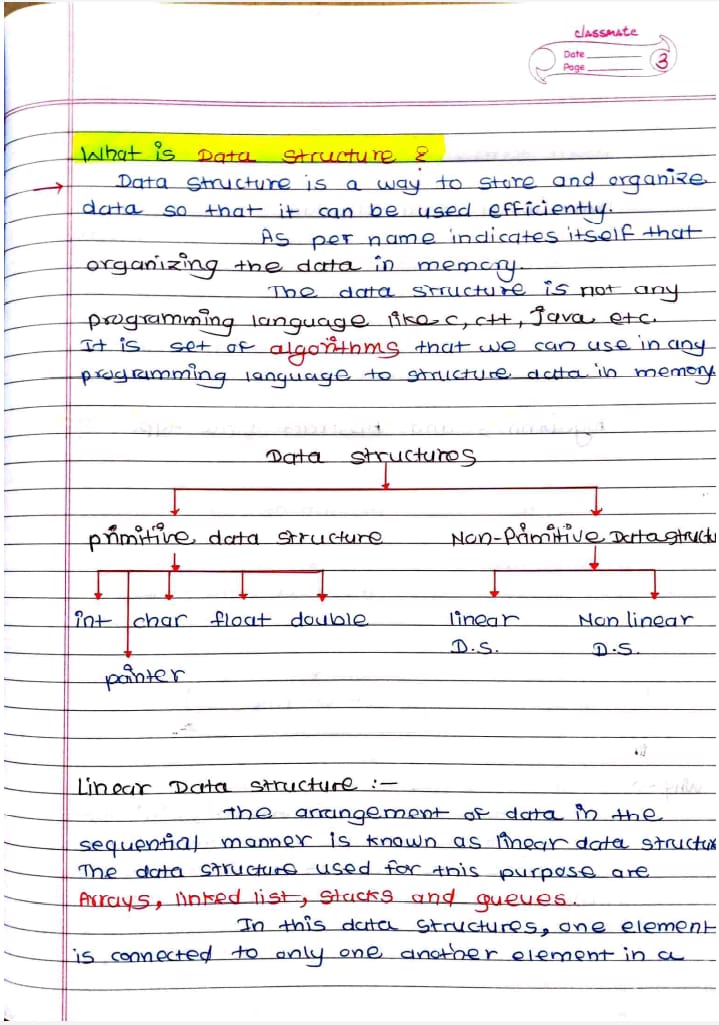 classmate
Date
Page 3
What is Data Structure ?
Data structure is a way to store and organize
data so that it can be used efficiently.
As per name indicates itself that
organizing the data in memory.
The data structure is not any
programming language like c, c++, Java etc.
It is set of algorithms that we can use in any
programming language to structure data in memory
Data structures
primitive data structure Non-Primitive Data structu
int char float double linear Non linear
D.S. D.S.
pointer
Linear Data structure :-
the arrangement of data in the
sequential manner is known as linear data structure
The data structure used for this purpose are
Arrays, linked list, stacks and queues.
In this data structures, one element
is connected to only one another element in a